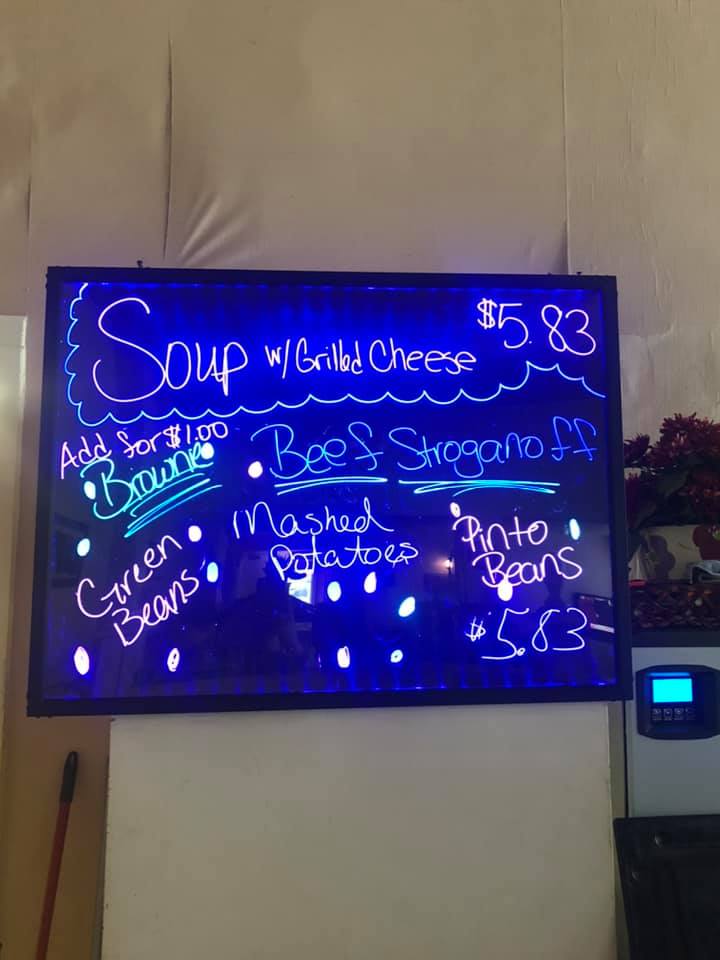 Soup w/ Grilled Cheese $5.83
Add for $1.00
Brownie
Beef Stroganoff
Mashed
Potatoes
Green
Beans
Pinto
Beans
$5.83